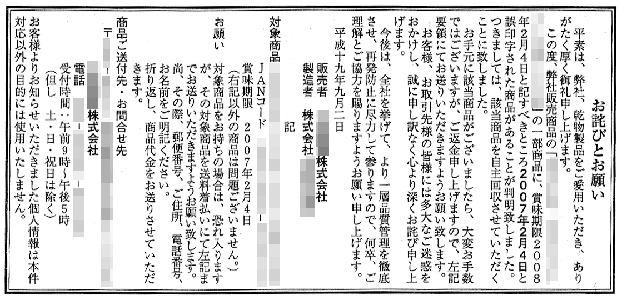 お詫びとお願い
平素は、弊社、乾物製品をご愛用いただき、あり
がたく厚く御礼申し上げます。
この度、弊社販売商品の「
」の一部商品に、賞味期限2008
年2月4日と記すべきところ2007年2月4日と
誤印字された商品があることが判明致しました。
つきましては、該当商品を自主回収させていただく
ことに致しました。
お手元に該当商品がございましたら、大変お手数
ではございますが、ご返金申し上げますので、左記
要領にてお送りいただきますようお願い致します。
お客様、お取引先様の皆様には多大なご迷惑を
おかけし、誠に申し訳なく心より深くお詫び申し上
げます。
今後は、全社を挙げて、より一層品質管理を徹底
させ、再発防止に尽力して参りますので、何卒、ご
理解とご協力を賜りますようお願い申し上げます。
平成十九年九月二日
販売者 株式会社
製造者 株式会社
記
対象商品
JANコード
賞味期限 2007年2月4日
(右記以外の商品は問題ございません。)
お願い
対象商品をお持ちの場合は、恐れ入ります
が、その対象商品を送料着払いにて左記ま
でお送りいただきますようお願い致します。
尚、その際、郵便番号、ご住所、電話番号、
お名前をご明記ください。
折り返し、商品代金をお送りさせていただ
きます。
商品ご送付先・お問合せ先
〒
株式会社
電話
受付時間:午前9時〜午後5時
(但し 土・日・祝日は除く)
お客様よりお知らせいただきました個人情報は本件
対応以外の目的には使用いたしません。